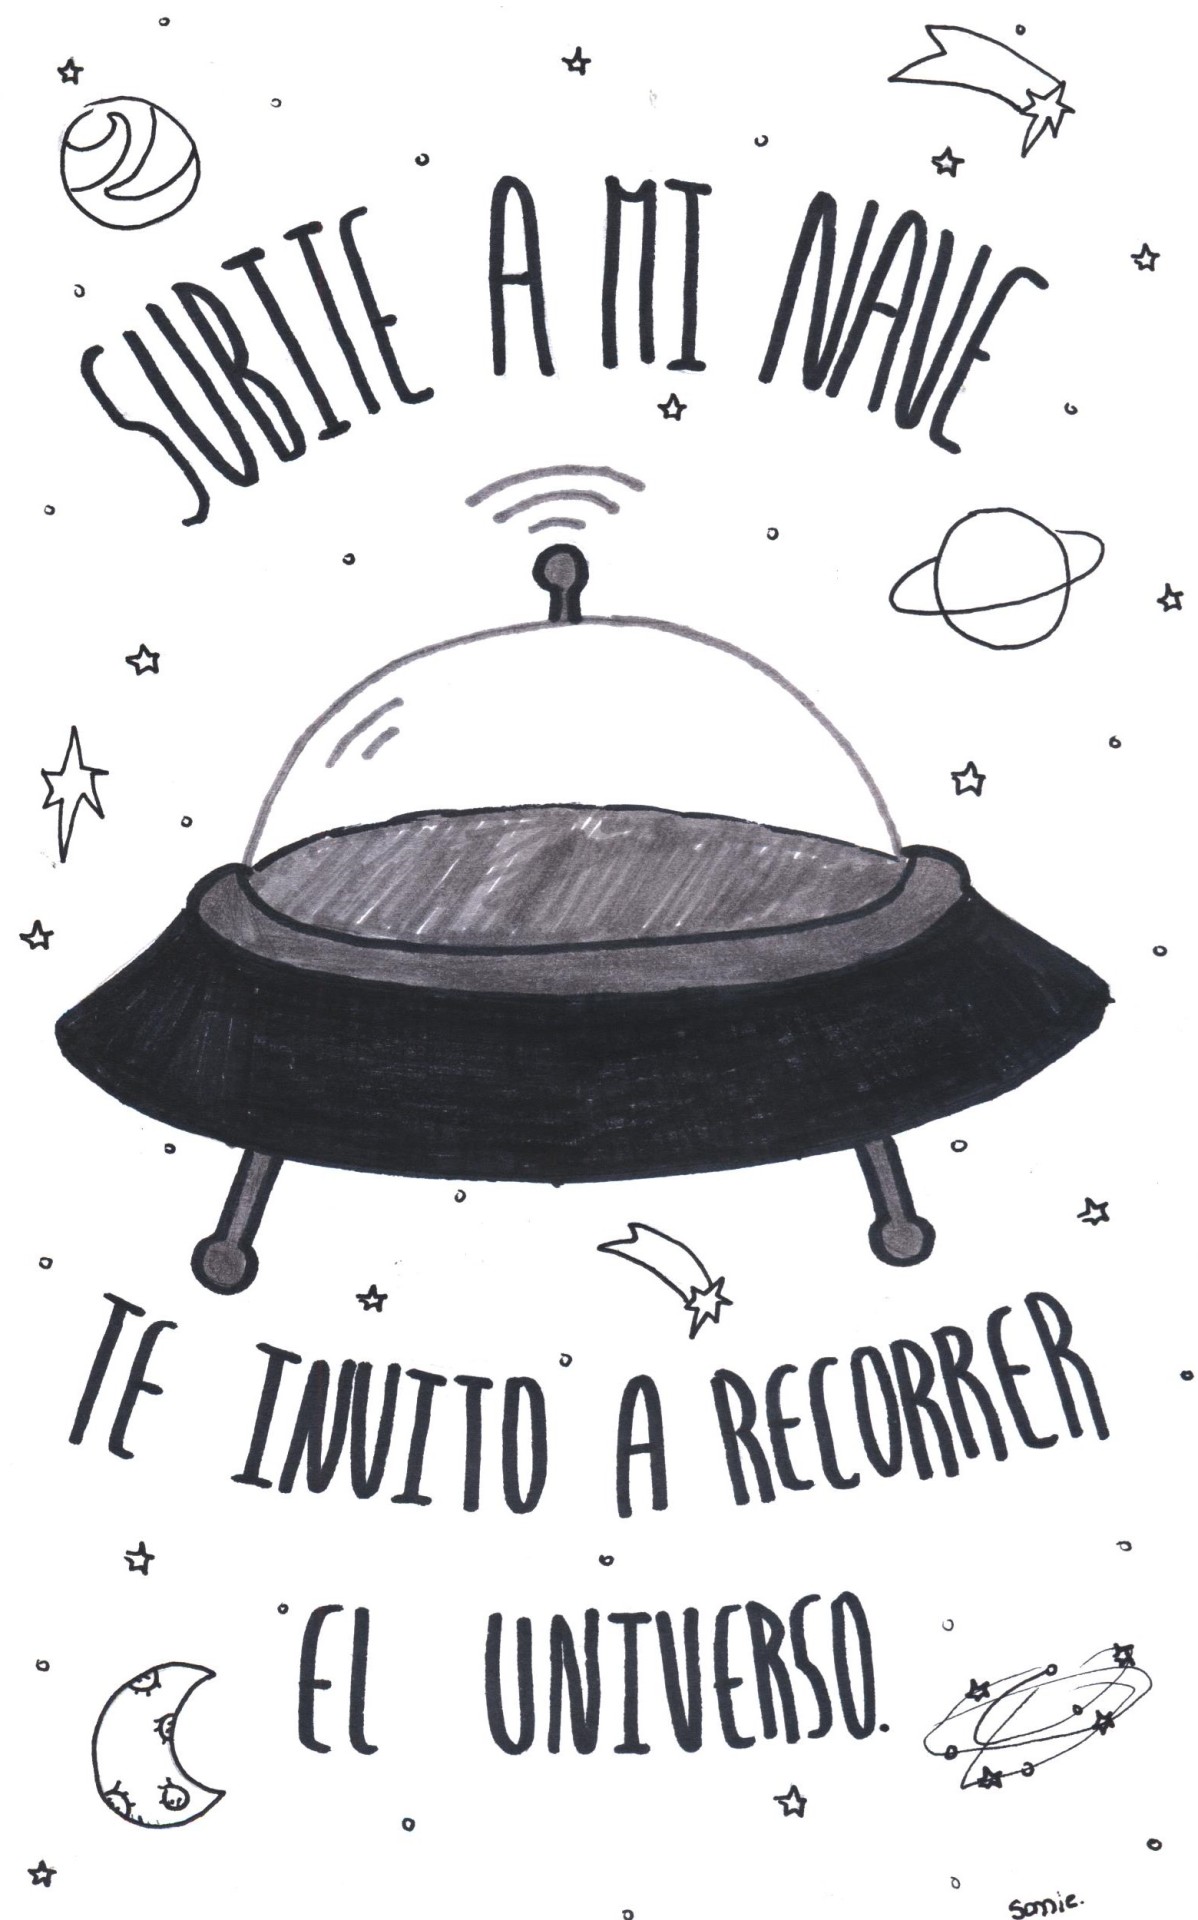 SUBITE A MI NAVE
TE INVITO A RECORRER
EL UNIVERSO.